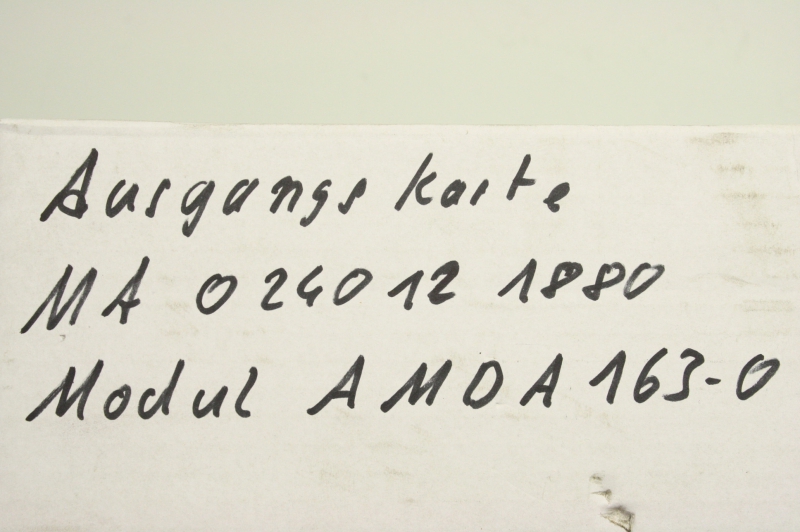 Ausgangs karte
MA 0 240 12 1880
Modul AMDA 163-0